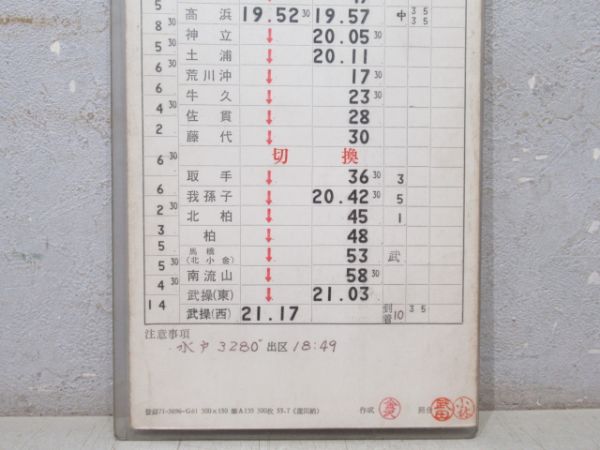 5
8 30 高浜 19.52 30 19.57 中 3 5 3 5
5 神立 ↓ 20.05 30
5 土浦 ↓ 20.11
6 30 荒川沖 ↓ 17 30
6 牛久 ↓ 23 30
4 30 佐貫 ↓ 28
2 藤代 ↓ 30
6 30 切換
取手 ↓ 36 30 3
6 我孫子 ↓ 20.42 30 5
2 30 北柏 ↓ 45 1
3 柏 ↓ 48
5 馬橋 (北小金) ↓ 53 武
5 30 南流山 ↓ 58 30
4 30 武操(東) ↓ 21.03
14 武操(西) 21.17 到着 10 3 5
注意事項
水戸 3280 出区 18:49
作成